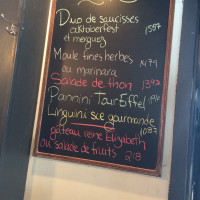 Duo de saucisses
oktoberfest 1587
et merguez
Moule fines herbes
ou marinara 1479
Salade de thon 1392
Pannini Tour Eiffel
Linguini sce gourmande
gâteau reine Elizabeth 1087
ou salade de fruits 218